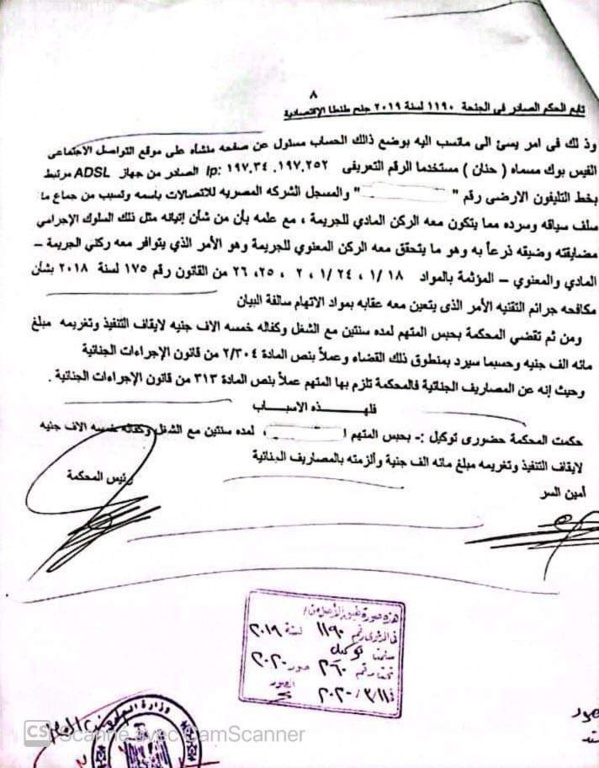 ٨
تابع الحكم الصادر في الجنحة ١١٩٠ لسنة ٢٠١٩ جنح طنطا الإقتصادية
وذ لك في امر يسئ الى مانسب اليه بوضع ذالك الحساب مسئول عن صفحه منشاه على موقع التواصل الاجتماعى
الفيس بوك مسماه ( حنان ) مستخدما الرقم التعريفى ١٩٧.٣٤. ١٩٧.٢٥٢ Ip: الصادر من جهاز ADSL مرتبط
بخط التليفون الارضى رقم " " والمسجل الشركه المصريه للاتصالات باسمه وتسبب من جماع ما
سلف سياقه وسرده مما يتكون معه الركن المادي للجريمة ، مع علمه بأن من شأن إتيانه مثل ذلك السلوك الإجرامي
مضايقته وضيقه ذرعاً به وهو ما يتحقق معه الركن المعنوي للجريمة وهو الأمر الذي يتوافر معه ركني الجريمة –
المادي والمعنوي – المؤثمة بالمواد ١/ ١٨ ، ١/ ٢٤ ، ٢ ، ٢٥، ٢٦ من القانون رقم ١٧٥ لسنة ٢٠١٨ بشأن
مكافحه جرائم التقنيه الأمر الذى يتعين معه عقابه بمواد الاتهام سالفة البيان
ومن ثم تقضي المحكمة بحبس المتهم لمده سنتين مع الشغل وكفاله خمسه الاف جنيه لايقاف التنفيذ وتغريمه مبلغ
مانه الف جنيه وحسبما سيرد بمنطوق ذلك القضاء وعملاً بنص المادة ٢/٣٠٤ من قانون الإجراءات الجنائية
وحيث إنه عن المصاريف الجنائية فالمحكمة تلزم بها المتهم عملاً بنص المادة ٣١٣ من قانون الإجراءات الجنائية .
فلهــــذه الاســـباب
حكمت المحكمة حضورى توكيل :- بحبس المتهم لمده سنتين مع الشغل وكفاله خمسه الاف جنيه
لايقاف التنفيذ وتغريمه مبلغ مانه الف جنية وألزمته بالمصاريف الجنائية
أمين السر
رئيس المحكمة
هذه صورة
رقم ١١٩٠ لسنة ٢٠١٩
توكيل
رقم ٢٦٠ صور ٢٠٢٠
٢٠٢٠/٣/١١
وزارة
CS CamScanner